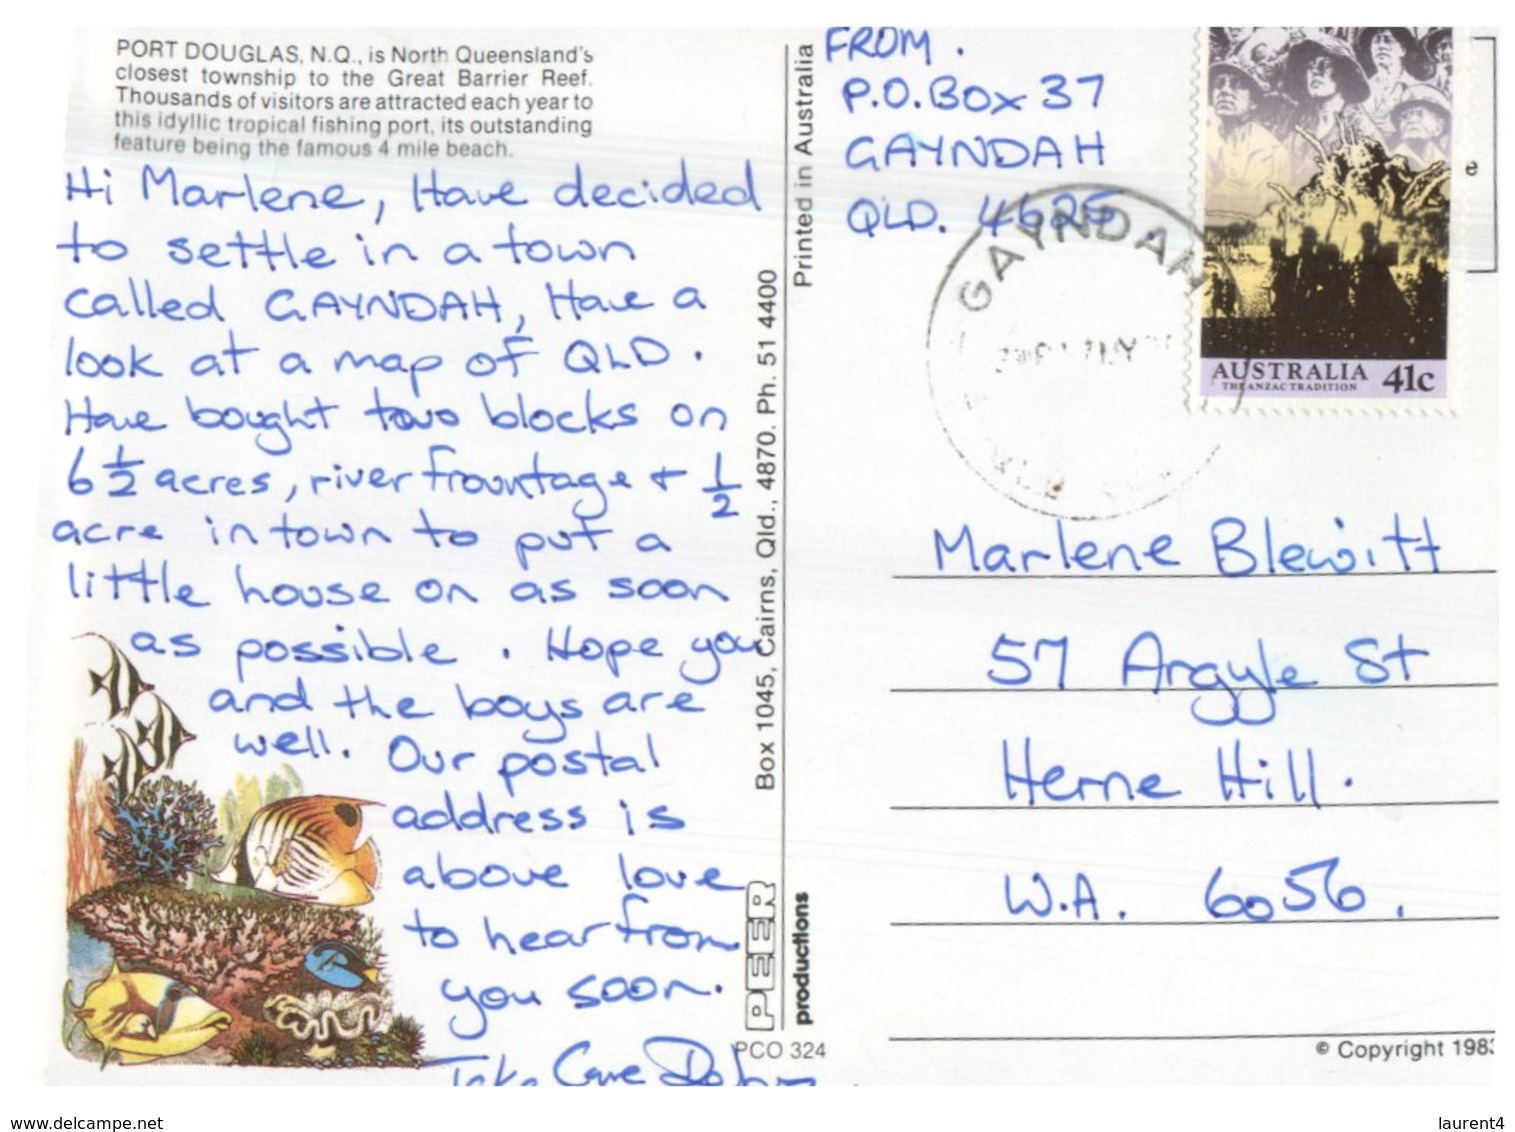 PORT DOUGLAS, N.Q., is North Queensland's
closest township to the Great Barrier Reef.
Thousands of visitors are attracted each year to
this idyllic tropical fishing port, its outstanding
feature being the famous 4 mile beach.
Hi Marlene, Have decided
to settle in a town
called GAYNDAH, Have a
look at a map of QLD.
Have bought two blocks on
6 1/2 acres, river frountage + 1/2
acre in town to put a
little house on as soon
as possible. Hope you
and the boys are
well. Our postal
address is
above love
to hear from
you soon.
Take Care
Printed in Australia
Box 1045, Cairns, Qld., 4870. Ph. 51 4400
PEER
productions
PCO 324
FROM.
P.O. Box 37
GAYNDAH
QLD. 4625.
GAYNDAH
AUSTRALIA 41c
THE ANZAC TRADITION
Marlene Blewitt
57 Argyle St
Herne Hill.
W.A. 6056.
© Copyright 1983
www.delcampe.net
laurent4